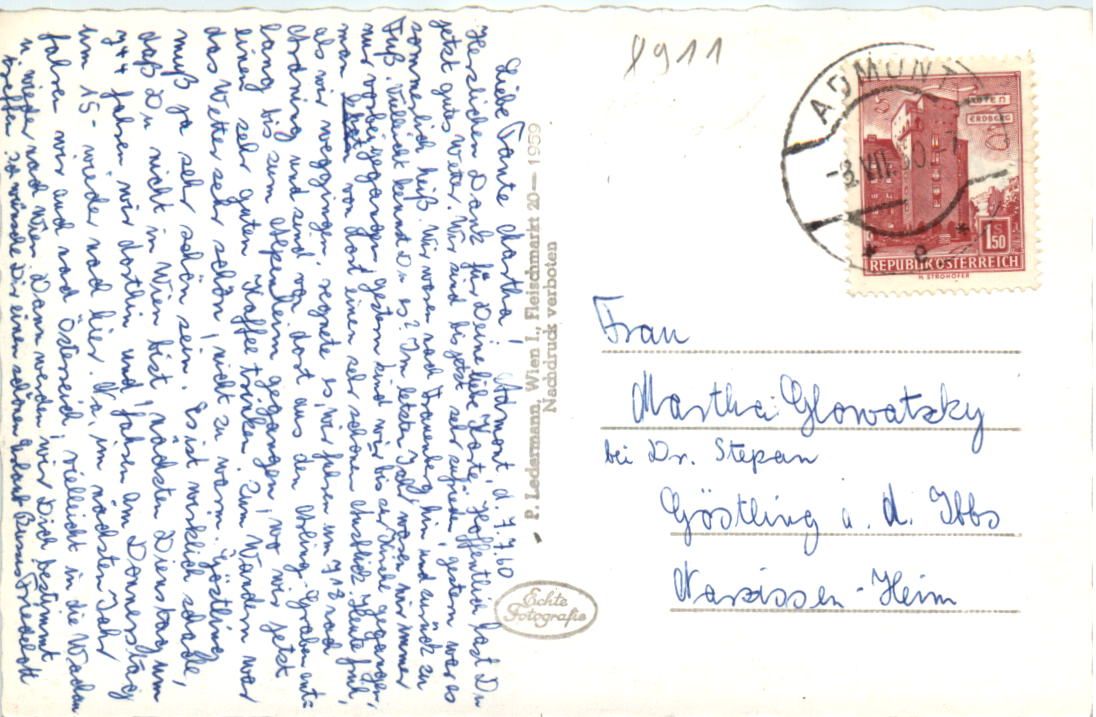 Liebe Tante Martha! Admont, d. 7.7.60
Herzlichen Dank für Deine liebe Karte. Hoffentlich hast Du
jetzt gutes Wetter. Wir sind bis jetzt sehr zufrieden, gestern war es
sommerlich heiß. Wir waren nach Frauenberg hin und zurück zu
Fuß. Vielleicht kennst Du es? Im letzten Jahr waren wir immer
nur vorbeigegangen, gestern sind wir bis zur Kirche gegangen,
man hat von dort einen sehr schönen Ausblick. Heute früh,
als wir weggingen, regnete es, wir fuhren um 1/2 8 nach
Ardning und sind von dort aus den Arling-Graben ent-
lang bis zum gegangen, wo wir jetzt
einen sehr guten Kaffee trinken. Zum Wandern war
das Wetter sehr schön, nicht zu warm. Göstling
muß ja sehr schön sein. Es ist wirklich schade,
daß Du nicht in Wien bist, nächsten Dienstag um
fahren wir dorthin und fahren am Donnerstag
um 15- wieder nach hier. Na, im nächsten Jahr
fahren wir auch nach Österreich, vielleicht in die Wachau
u. wieder nach Wien. Dann werden wir Dich bestimmt
treffen. Ich wünsche Dir einen schönen Urlaub
P. Ledermann, Wien I., Fleischmarkt 20 — 1959
Nachdruck verboten
Echte
Fotografie
8911
ADMONT
-8.VII.60.-7
* e *
BAUTEN
ERDBERG
1.50
S
REPUBLIK ÖSTERREICH
H. STROHOFER
Frau
Martha Glowatzky
bei Dr. Stepan
Göstling a. d. Ibbs
Narzissen-Heim